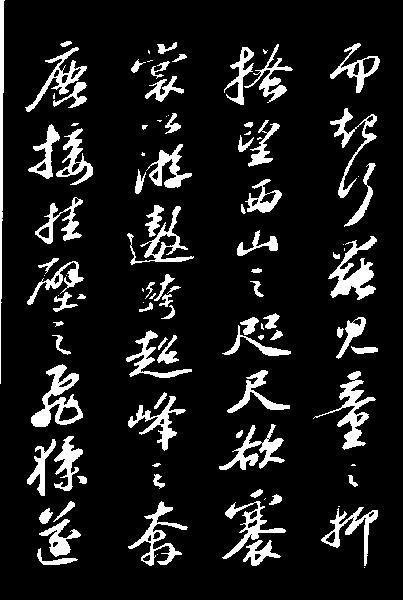 而起行罷兒童之抑
搔望西山之咫尺欲褰
裳以游遨跨超峰之奔
鹿接挂壁之飛猱遂